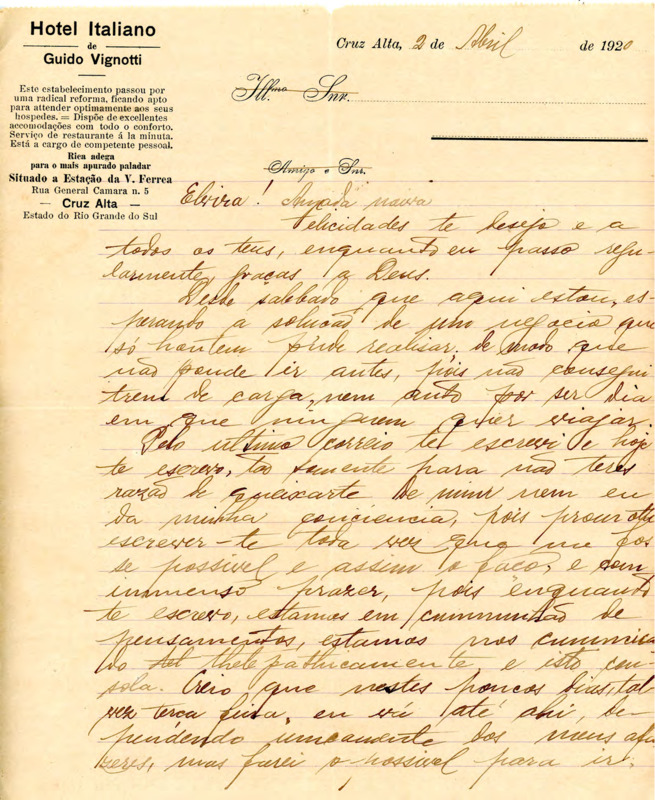 Hotel Italiano
de
Guido Vignotti
Este estabelecimento passou por
uma radical reforma, ficando apto
para attender optimamente aos seus
hospedes. = Dispõe de excellentes
accomodações com todo o conforto.
Serviço de restaurante á la minuta.
Está a cargo de competente pessoal.
Rica adega
para o mais apurado paladar
Situado a Estação da V. Ferrea
Rua General Camara n. 5
Cruz Alta
Estado do Rio Grande do Sul
Cruz Alta, 2 de Abril de 1920
Ill.mo Snr.
Amigo e Snr.
Elvira! Amada noiva
Felicidades te desejo e a
todos os teus, enquanto eu passo regu-
larmente, graças a Deus.
Desde sabbado, que aqui estou, es-
perando a solução de um negocio que
só hontem pude realizar, de modo que
não poude ir antes, pois não consegui
trem de carga, nem auto por ser dia
em que ninguem quer viajar.
Pelo ultimo correio te escrevi e hoje
te escrevo, tão somente para não teres
razão de queixarte de mim nem eu
da minha conciencia, pois
escrever-te toda vez que me fos
se possivel e assim o faço, e com
immenso prazer, pois enquando
te escrevo, estamos em cummunhão de
pensamentos, estamos nos
do thelepathicamente e isto con-
sola. Creio que nestes poucos dias, tal
vez terça feira, eu vá até ahi, de-
pendendo unicamente dos meus afa
zeres, mas farei o possivel para ir.